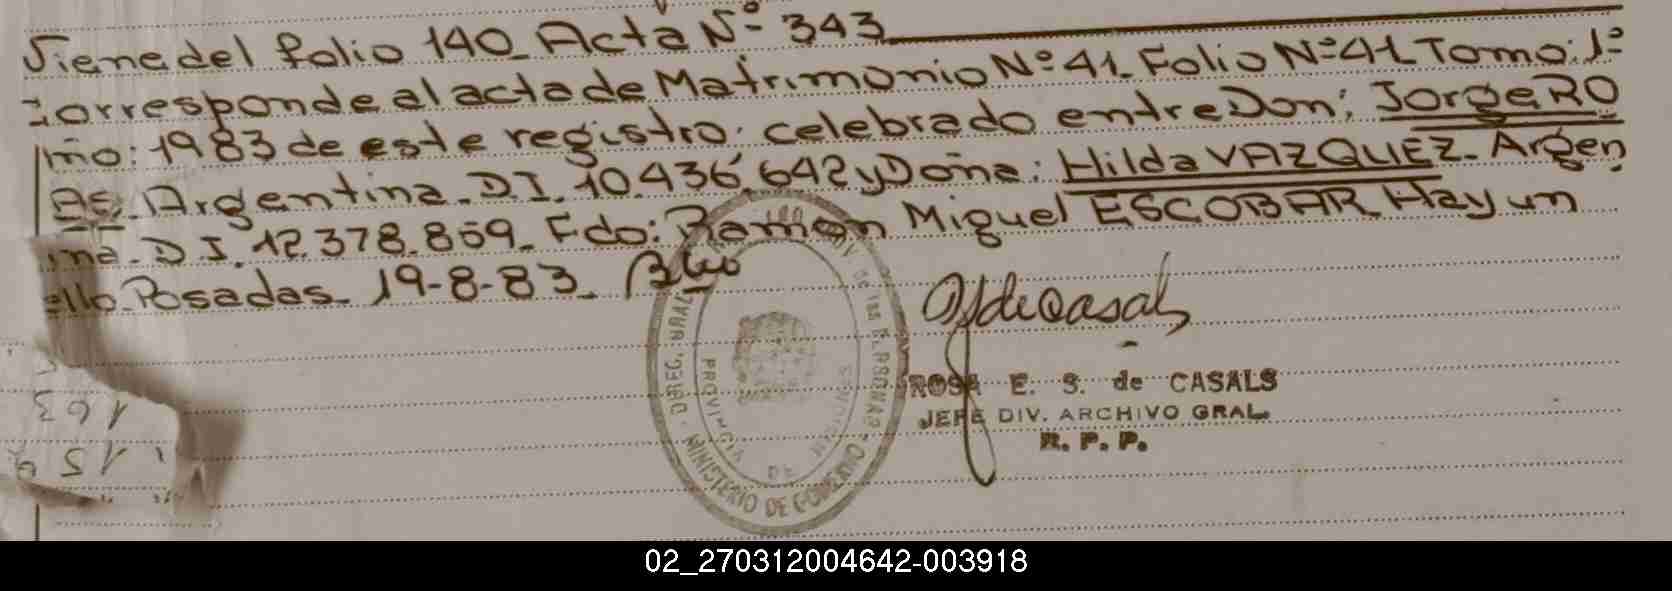 Viene del folio 140_ Acta Nº 343
Corresponde al acta de Matrimonio Nº 41_ Folio Nº 41_ Tomo: 1º
Año: 1983 de este registro. celebrado entre Don: Jorge RO
Argentina_ D.I. 10.436.642 y Doña: Hilda VAZQUEZ_ Argen
ina_ D.I. 12.378.859_ Fdo: Ramon Miguel ESCOBAR_ Hay un
ello. Posadas_ 19-8-83_
ROSA E. S. de CASALS
JEFE DIV. ARCHIVO GRAL.
R. P. P.
MINISTERIO DE GOBIERNO
PROVINCIA DE MISIONES
de las PERSONAS
163
15
02_270312004642-003918